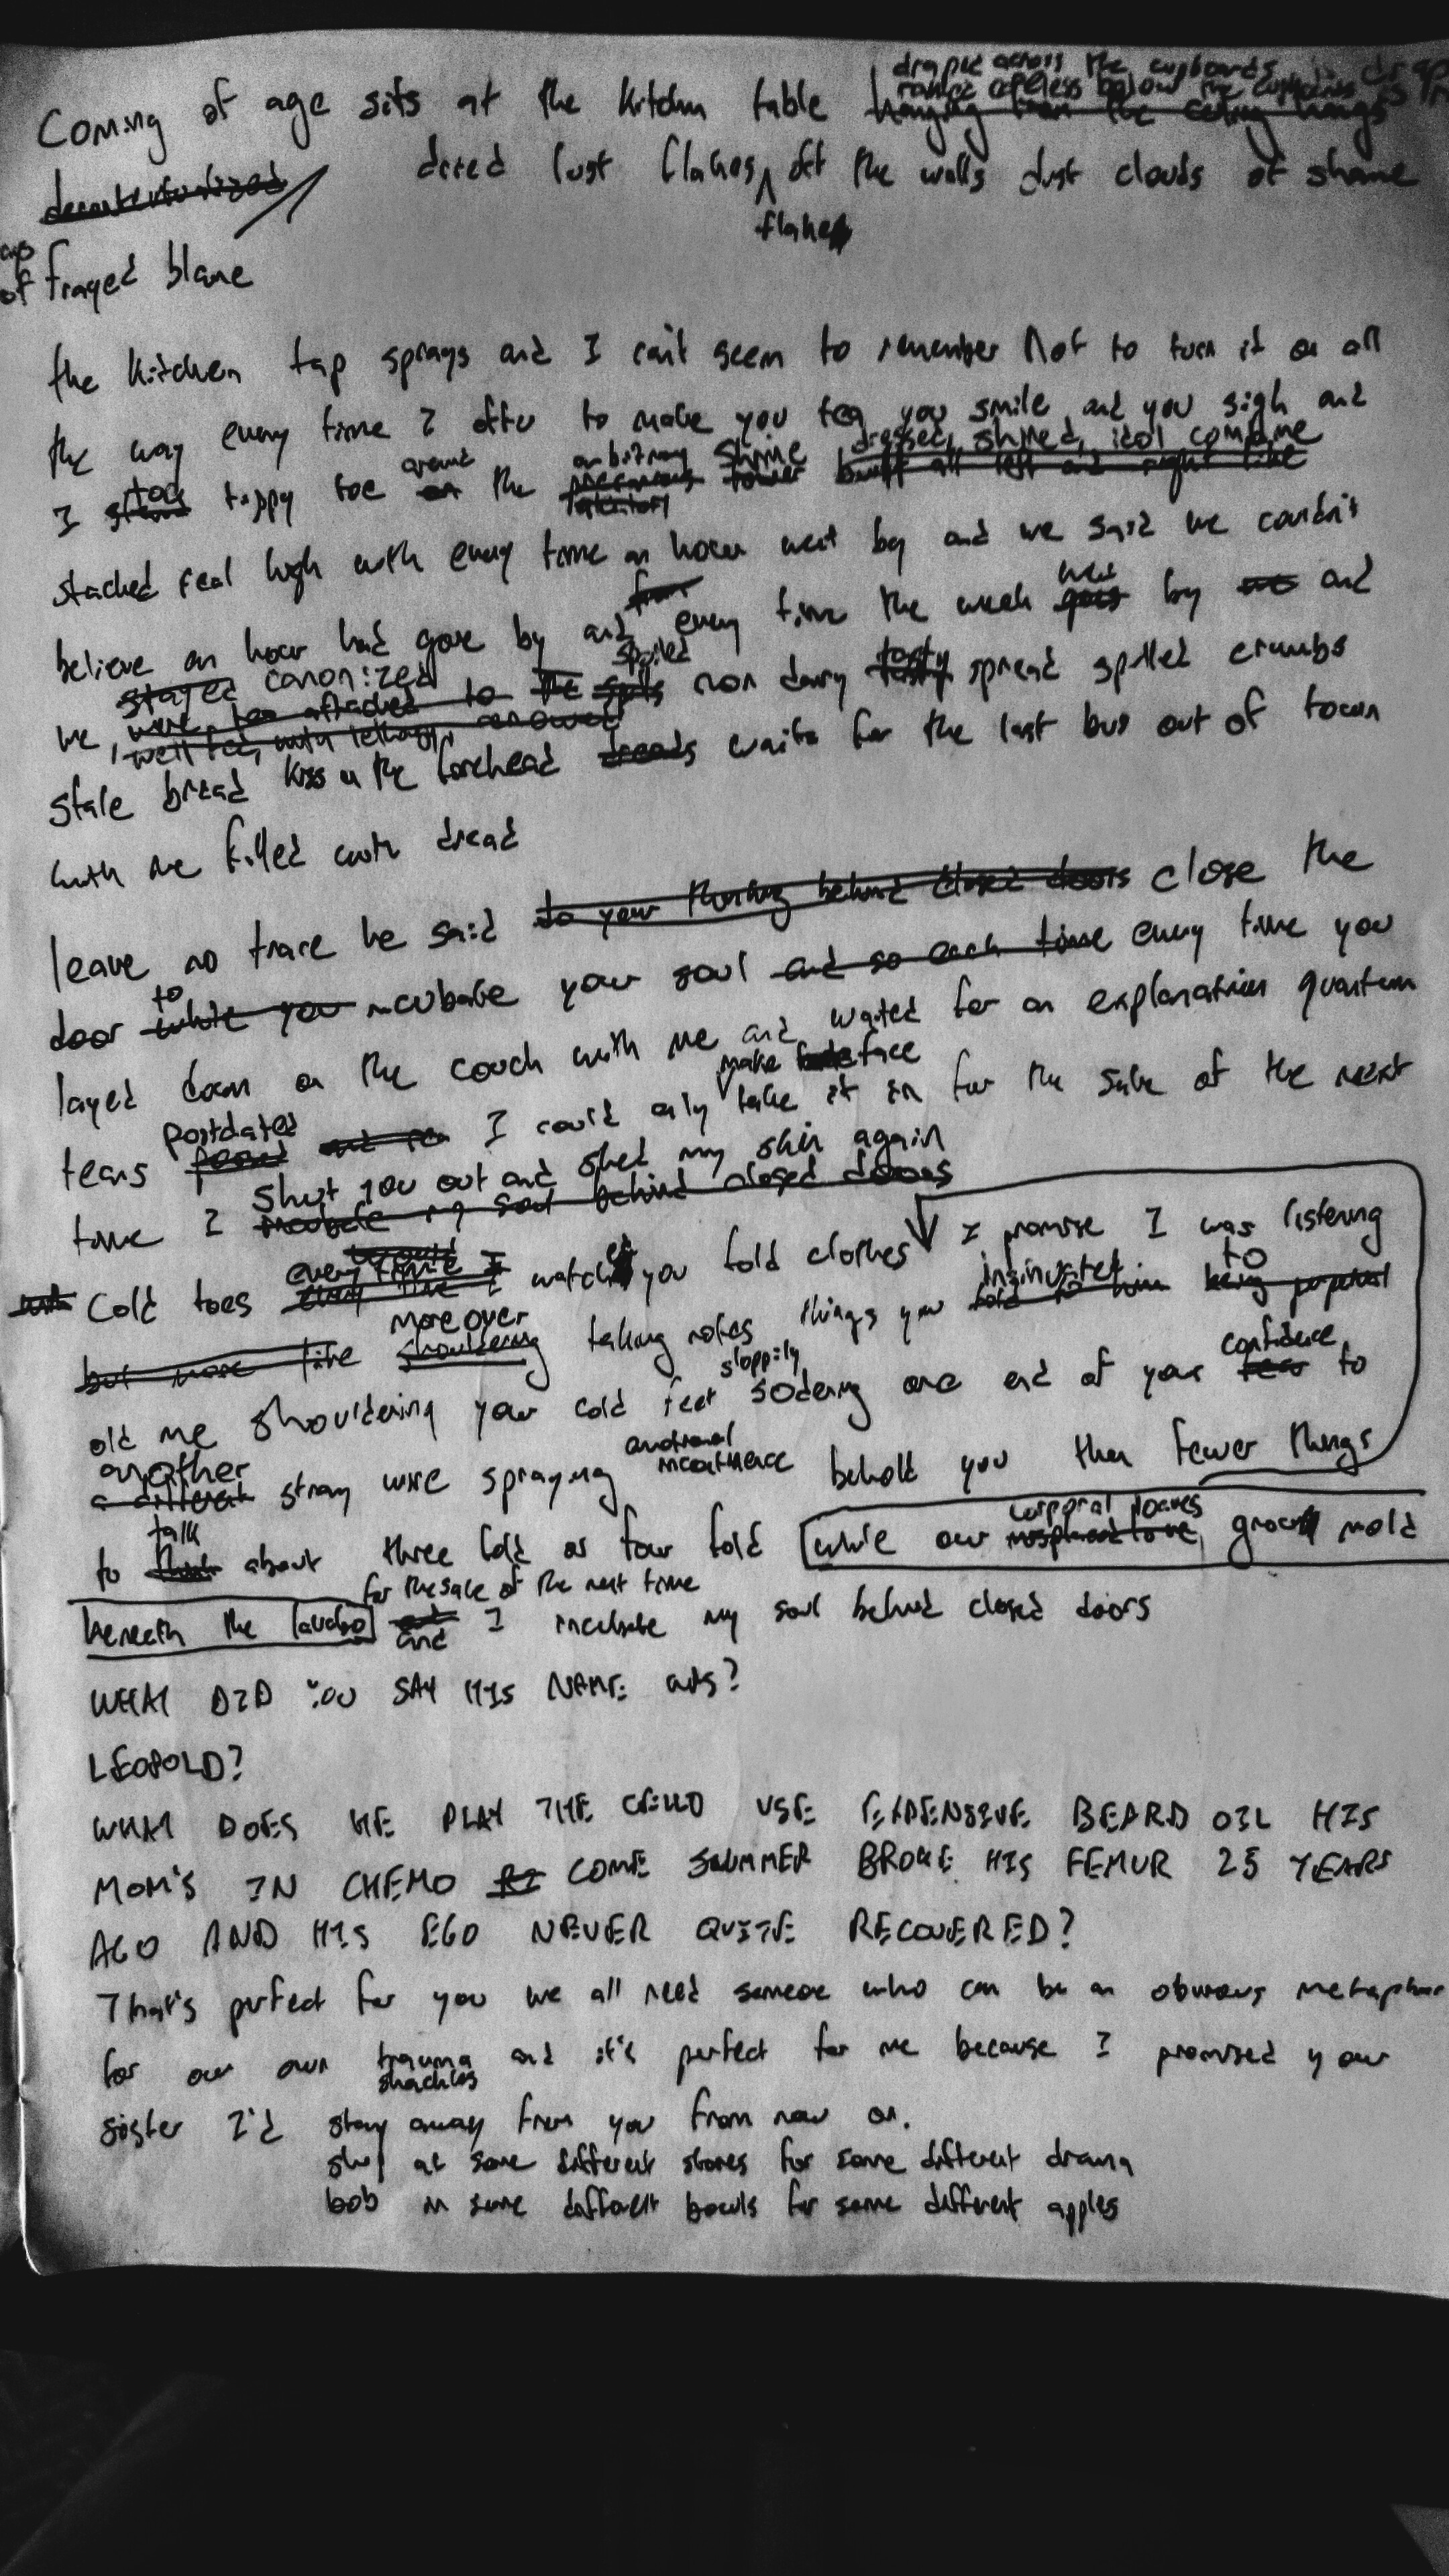 draped across the cupboards
below the
Coming of age sits at the kitchen table hanging from the ceiling hangs
decontextualized dried lust flakes off the walls dust clouds of shame
flakes
of frayed blame
the kitchen tap sprays and I can't seem to remember not to turn it on all
the way every time I offer to make you tea you smile and you sigh and
around arbitrary shrine dressed, shined, idol
I stood tippy toe on the precarious tower built all left and right like
stacked real high with every time an hour went by and we said we couldn't
believe an hour had gone by and from every time the week goes by and
stayed canonized spoiled
we, were too attached to the non dairy tasty spread spilled crumbs
well fed, with lethargy
stale bread kiss on the forehead waits for the last bus out of town
with me filled with dread
leave no trace he said to your behind closed doors close the
to
door while you incubate your soul and so each time every time you
layed down on the couch with me and waited for an explanation quantum
postdated make face
tears I could only take it in for the sake of the next
shut you out and shed my skin again
time I incubate my soul behind closed doors
Cold toes every time I watched you fold clothes I promise I was listening
more over insinuated to
but more like shouldering taking notes things you told to him being
old me shouldering your cold feet sloppily sodering one end of your fear to
confidence
another emotional
a different stray wire spraying incontinence behold you then fewer things
talk corporal loaves
to think about three fold or four fold while our grow mold
for the sake of the next time
beneath the and I incubate my soul behind closed doors
WHAT DID YOU SAY HIS NAME WAS?
LEOPOLD?
WHAT DOES HE PLAY THE CELLO USE EXPENSIVE BEARD OIL HIS
MOM'S IN CHEMO COME SUMMER BROKE HIS FEMUR 25 YEARS
AGO AND HIS EGO NEVER QUITE RECOVERED?
That's perfect for you we all need someone who can be an obvious metaphor
for our own trauma and it's perfect for me because I promised your
shackles
sister I'd stay away from you from now on.
shop at some different stores for some different drama
bob in some different bowls for some different apples